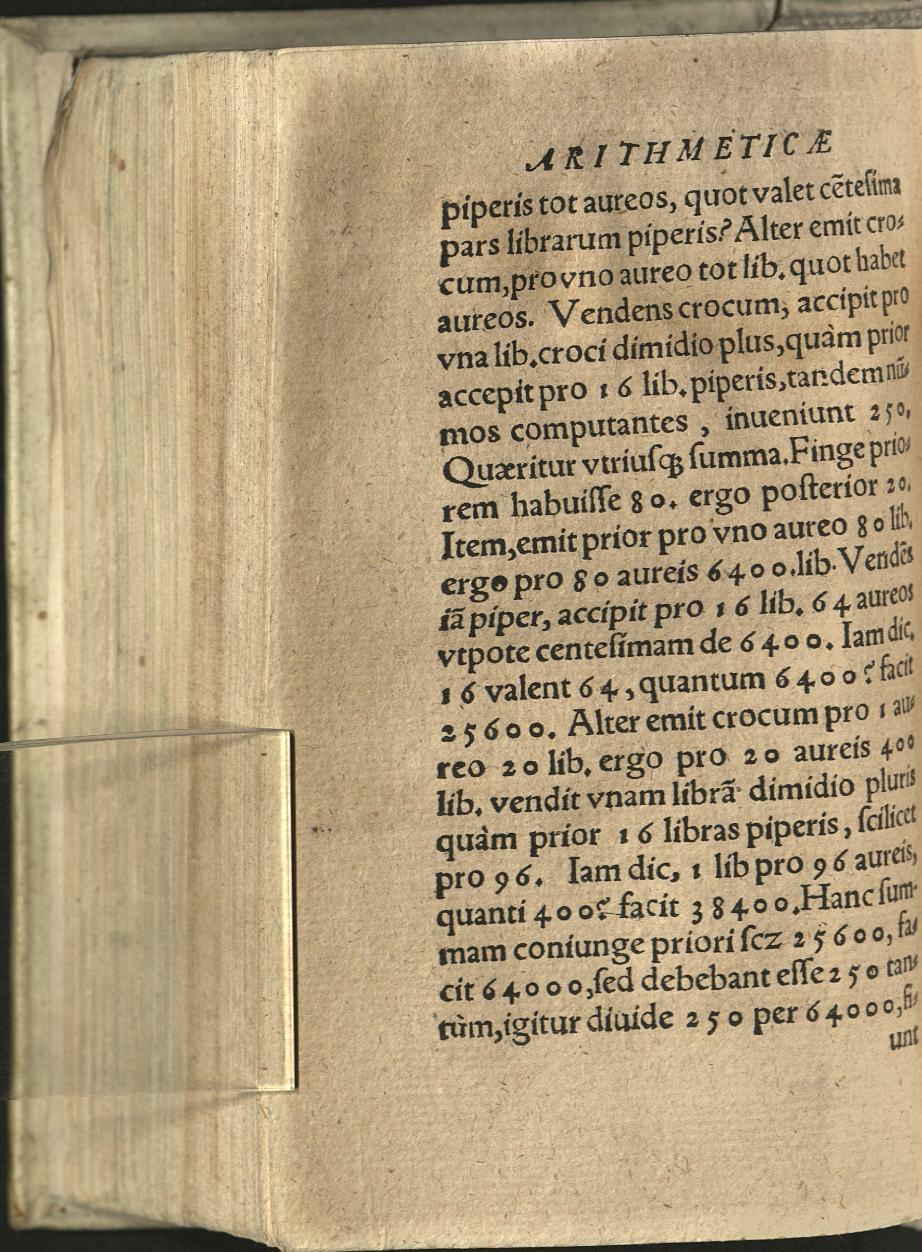 ARITHMETICÆ
piperis tot aureos, quot valet cẽteſima
pars librarum piperis? Alter emit cro⸗
cum, pro vno aureo tot lib. quot habet
aureos. Vendens crocum, accipit pro
vna lib. croci dimidio plus, quàm prior
accepit pro 16 lib. piperis, tandem nũ⸗
mos computantes, inueniunt 250,
Quæritur vtriuſqꝫ ſumma. Finge prio⸗
rem habuiſſe 80. ergo poſterior 20.
Item, emit prior pro vno aureo 80 lib,
ergo pro 80 aureis 6400. lib. Vendẽs
iã piper, accipit pro 16 lib. 64 aureos
vtpote centeſimam de 6400. Iam dic,
16 valent 64, quantum 6400? facit
25600. Alter emit crocum pro 1 au⸗
reo 20 lib. ergo pro 20 aureis 400
lib. vendit vnam librã dimidio pluris
quàm prior 16 libras piperis, ſcilicet
pro 96. Iam dic, 1 lib pro 96 aureis,
quanti 400? facit 38400. Hanc ſum-
mam coniunge priori ſcz 25600, fa⸗
cit 64000, ſed debebant eſſe 250 tan⸗
tùm, igitur diuide 250 per 64000, fi⸗
unt